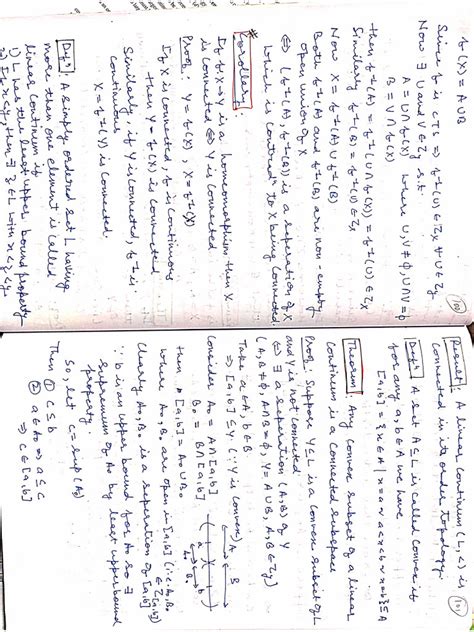 100
f(X) = A ∪ B
Since f is cts ⇒ f⁻¹(U) ∈ τ_X ∀ U ∈ τ_Y
Now ∃ U and V ∈ τ_Y s.t.
A = U ∩ f(X) where U, V ≠ ϕ, U ∩ V = ϕ
B = V ∩ f(X)
then f⁻¹(A) = f⁻¹(U ∩ f(X)) = f⁻¹(U) ∈ τ_X
Similarly f⁻¹(B) = f⁻¹(V) ∈ τ_X
Now X = f⁻¹(A) ∪ f⁻¹(B)
Both f⁻¹(A) and f⁻¹(B) are non-empty
open union of X
⇔ (f⁻¹(A), f⁻¹(B)) is a separation of X
which is contradⁿ to X being connected.
Corollary
If f: X → Y is a homeomorphism then X
is connected ⇔ Y is connected.
Proof: Y = f(X), X = f⁻¹(Y)
If X is connected, f is continuous
then Y = f(X) is connected
Similarly, if Y is connected, f⁻¹ is
continuous
X = f⁻¹(Y) is connected.
Defⁿ: A simply ordered set L having
more than one element is called
linear continuum if
1) L has the least upper bound property
2) If x < y, then ∃ z ∈ L with x < z < y.
101
Result: A linear continuum (L, <) is
connected in its order topology.
Defⁿ: A set A ⊆ L is called convex if
for any a, b ∈ A we have
[a, b] = {x ∈ A | x = a ∨ a < x < b ∨ x = b} ⊆ A
Theorem: Any convex subset of a linear
continuum is a connected subspace
Proof: Suppose Y ⊆ L is a convex subset of L
and Y is not connected
⇔ ∃ a separation (A, B) of Y
(A, B ≠ ϕ, A ∩ B = ϕ, Y = A ∪ B, A, B ∈ τ_Y)
Take a ∈ A, b ∈ B
⇒ [a, b] ⊆ Y (∵ Y is convex)
Consider A₀ = A ∩ [a, b]
B₀ = B ∩ [a, b]
then [a, b] = A₀ ∪ B₀
where A₀, B₀ are open in [a, b] (∵ A₀, B₀ ∈ τ[a, b])
Clearly A₀, B₀ is a separation of [a, b]
∵ b is an upper bound for A₀ so ∃
supremum of A₀ by least upper bound
property.
So, let c = sup(A₀)
Then ① c ≤ b
② a ∈ A₀ ⇒ a ≤ c
⇒ c ∈ [a, b]